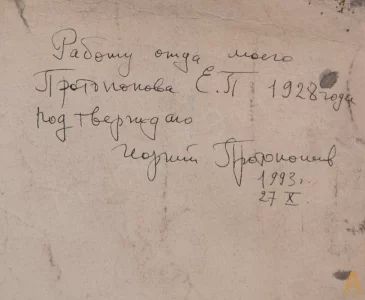 Работу отца моего
Протопопова Е.П 1928 года
подтверждаю
Георгий Протопопов
1993г.
27 X.